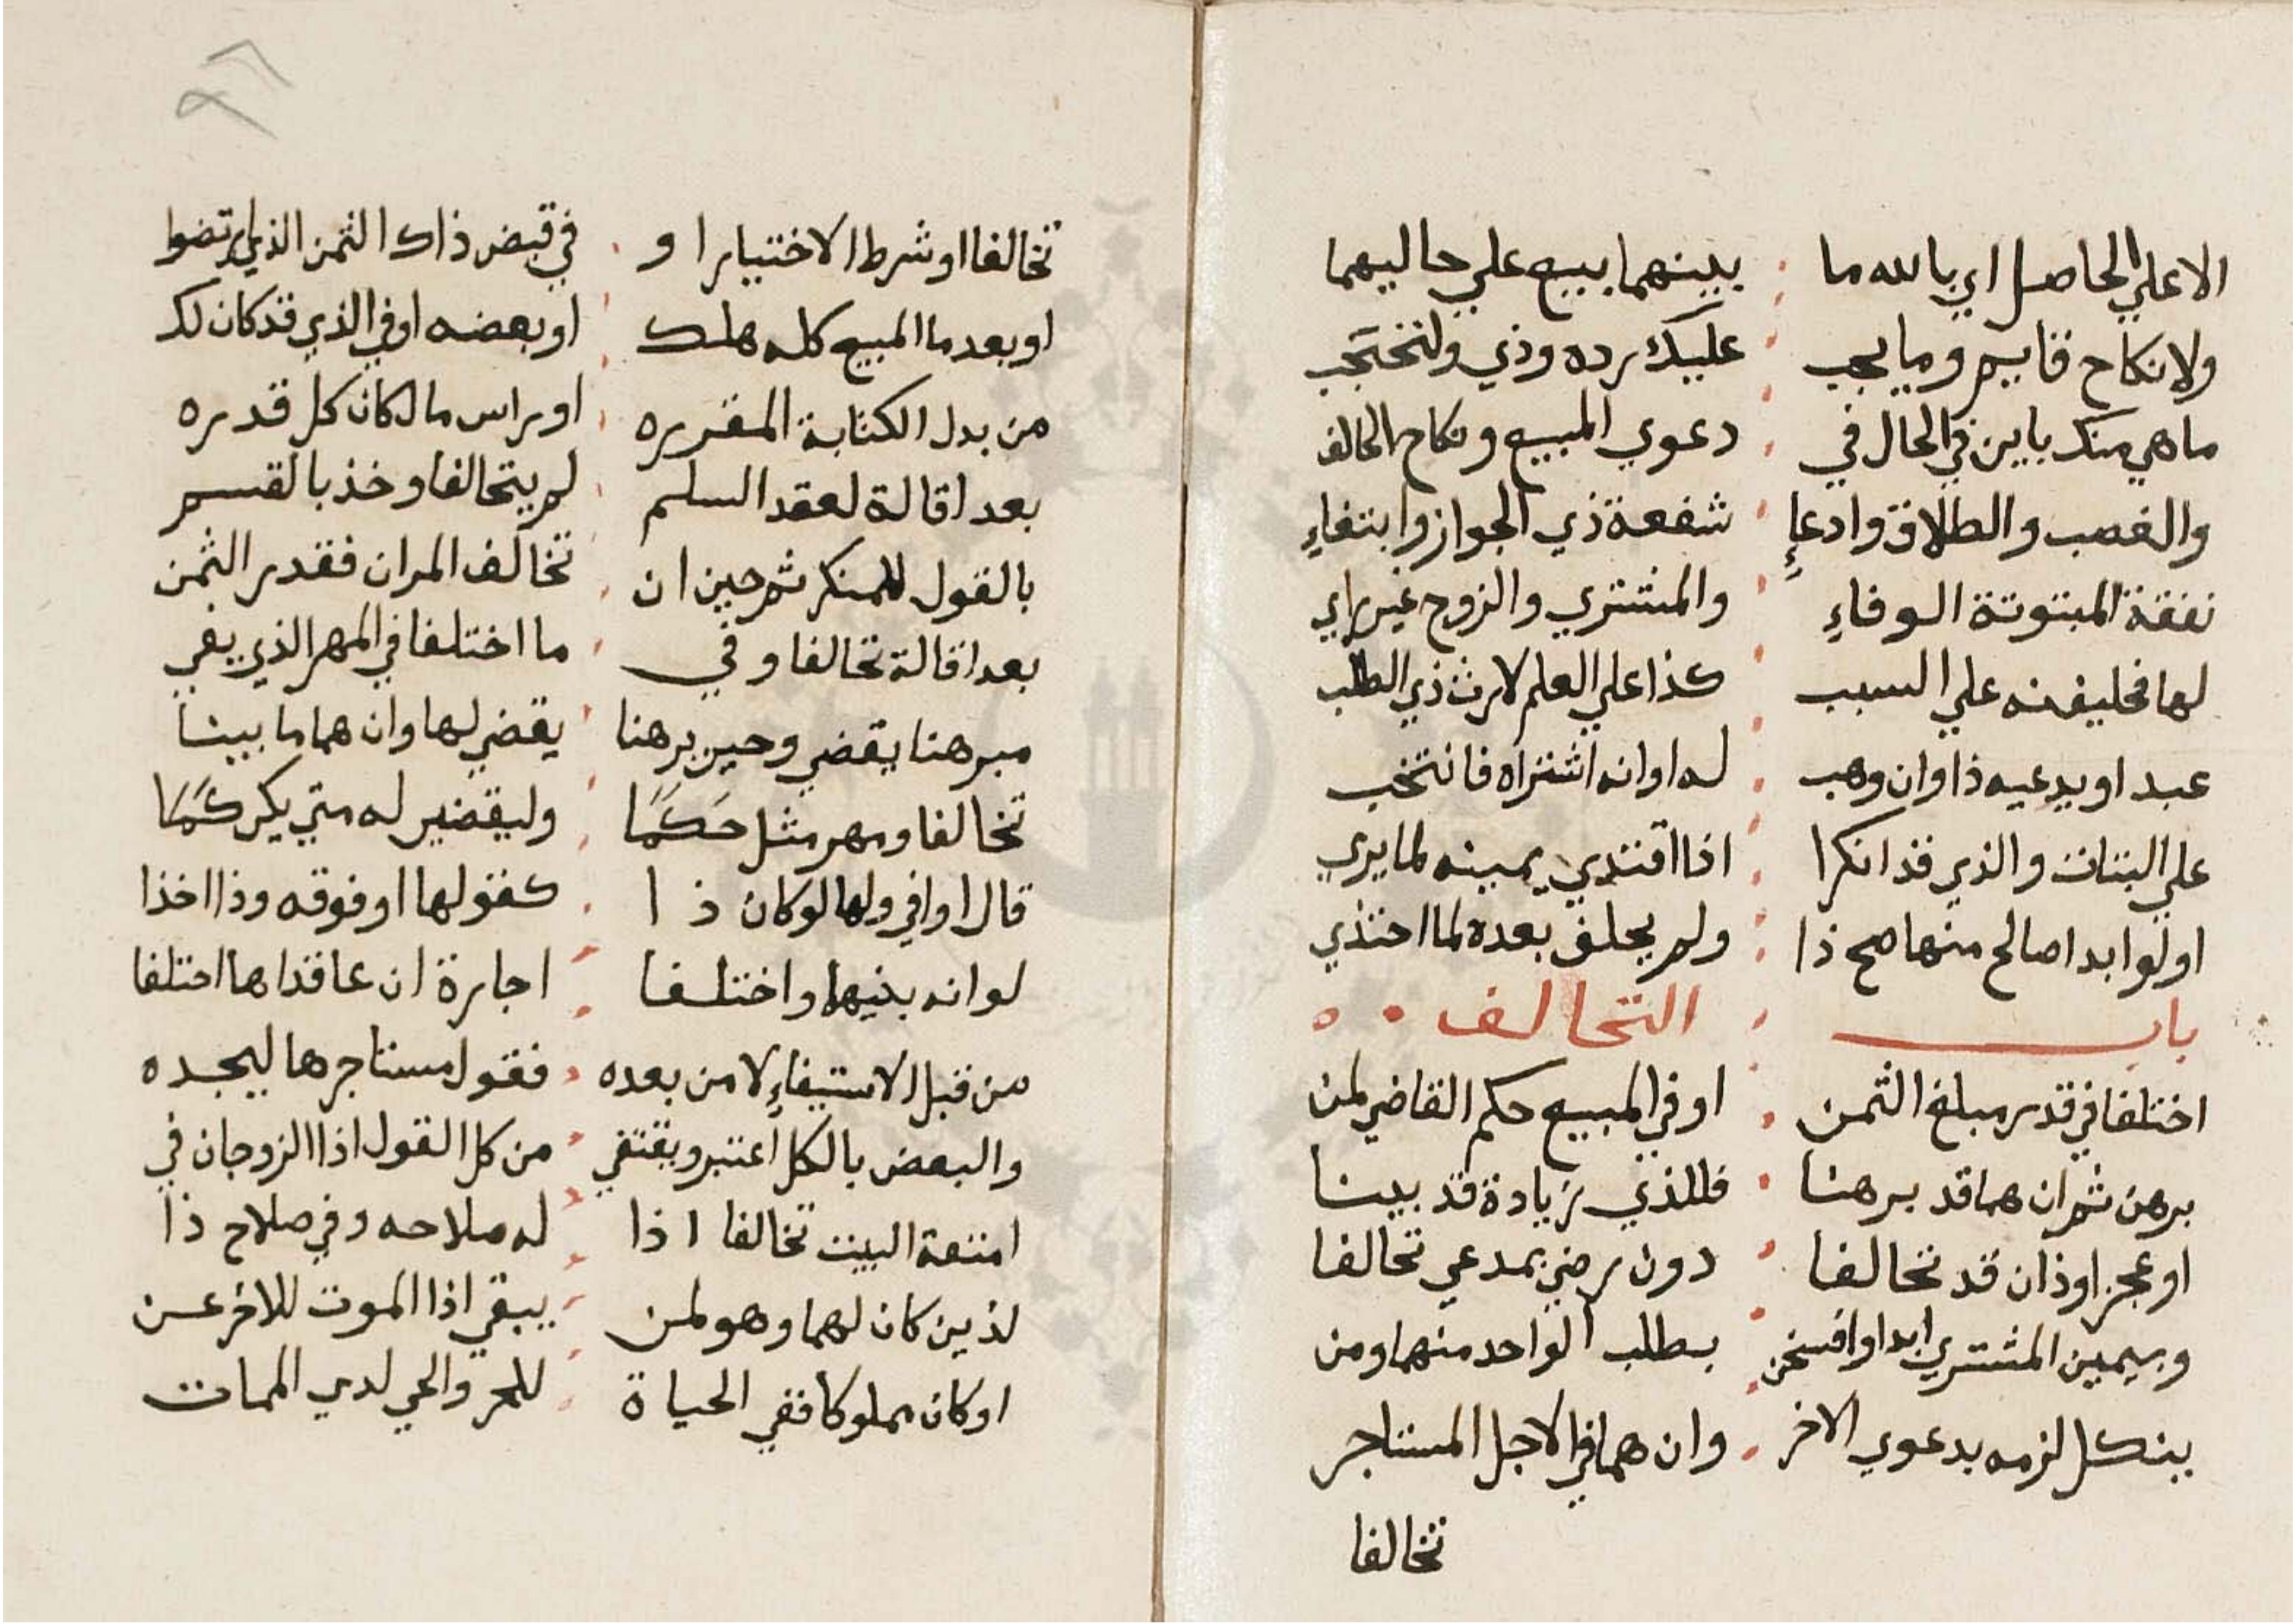 الاعلي الحاصل اي بالله ما بينهما بيع علي حاليهما
ولا نكاح قايم وما يجب عليك رده وذي ولتحتجب
ما هي منك باين في الحال في دعوي المبيع ونكاح الحالف
والغصب والطلاق وادعاءِ شفعة ذي الجواز وابتغاءِ
نفقة المبتوتة الوفاءِ والمشتري والزوج غير راي
لها فحليفنه علي السبب كذا علي العلم لارث ذي الطلب
عبد او يدعيه ذا وان وهب له او انه اشتراه فانتخب
علي البتات والذي قد انكرا اذا اقتدي يمينه لما يري
او لو ابدا صالح منها صح ذا ولم يحلف بعده لما احتذي
باب التحالف
اختلفا في قدر مبلغ الثمن او في المبيع حكم القاضي لمن
برهن ثم ان هما قد برهنا فللذي زيادة قد بينا
او عجزا وذان قد تحالفا دون رضي بمدعي تحالفا
وبيمين المشتري ابدا وافسخن بطلب الواحد منهما ومن
ينكل لزمه بدعوي الاخر وان هما في الاجل المستاجر
تخالفا
تخالفا او شرط الاختيار او في قبض ذاك الثمن الذي ارتضوا
او بعد ما المبيع كله هلك او بعضه او في الذي قد كان لك
من بدل الكتابة المقرره او راس مال كان كل قدره
بعد اقالة لعقد السلم لم يتحالفا وخذ بالقسم
بالقول للمنكر ثم حين ان تخالف المران فقدر الثمن
بعد اقالة تحالفا وفي ما اختلفا في المهر الذي يفي
مبرهنا يقضي وحين برهنا يقضي لها وان هما ما بينا
تخالفا ومهر مثل حَكَمَا وليقضين له متي يكن كَمَا
قال او افي ولها لو كان ذا كقولها او فوقه وذا اخذا
لو انه بينهما واختلفا اجارة ان عاقداها اختلفا
من قبل الاستيفاءِ لا من بعده فقول مستاجرها ليجده
والبعض بالكل اعتبر ويقتفي من كل القول اذا الزوجان في
امتعة البيت تخالفا اذا له صلاحه وفي صلاح ذا
لذين كان لهما وهو لمن يبقي اذا الموت للاخر عن
او كان مملوكا ففي الحياة للحر والحي لدي الممات